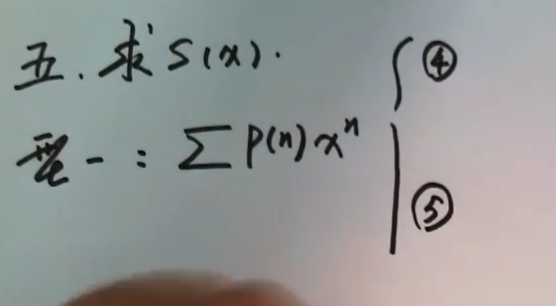 五. 求 S(x).
④
型一: ∑ P(n) xⁿ
⑤